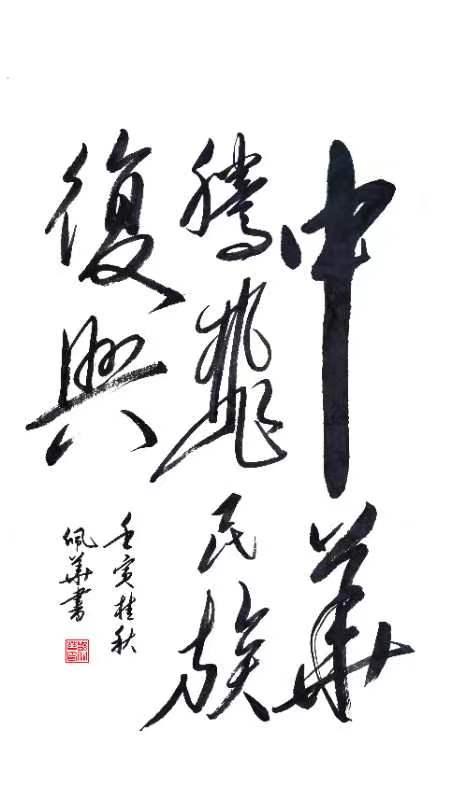 中華
騰飛民族
復興
壬寅桂秋
佩華書